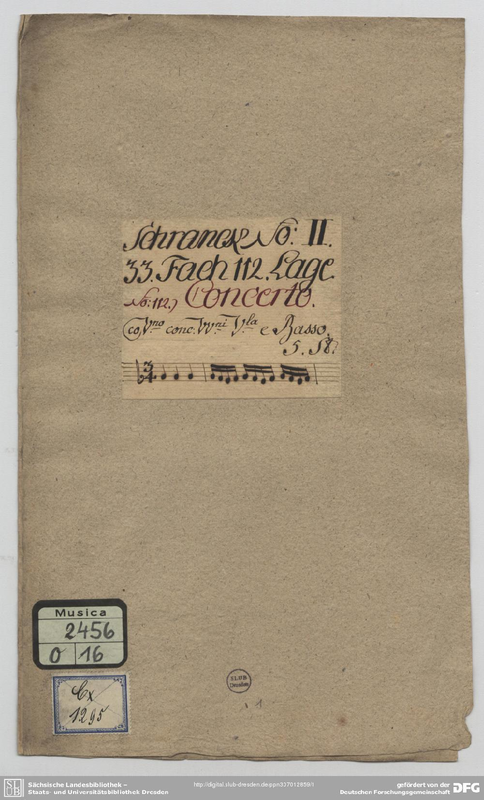 Schranck No: II.
33. Fach 112. Lage.
No: 112.) Concerto.
co Vno conc. VVni Vla e Basso.
5. St:
3
4
Musica
2456
O 16
Cx
1295
SLUB
Dresden
1
Sächsische Landesbibliothek –
Staats- und Universitätsbibliothek Dresden
http://digital.slub-dresden.de/ppn3370128591
gefördert von der
Deutschen Forschungsgemeinschaft DFG